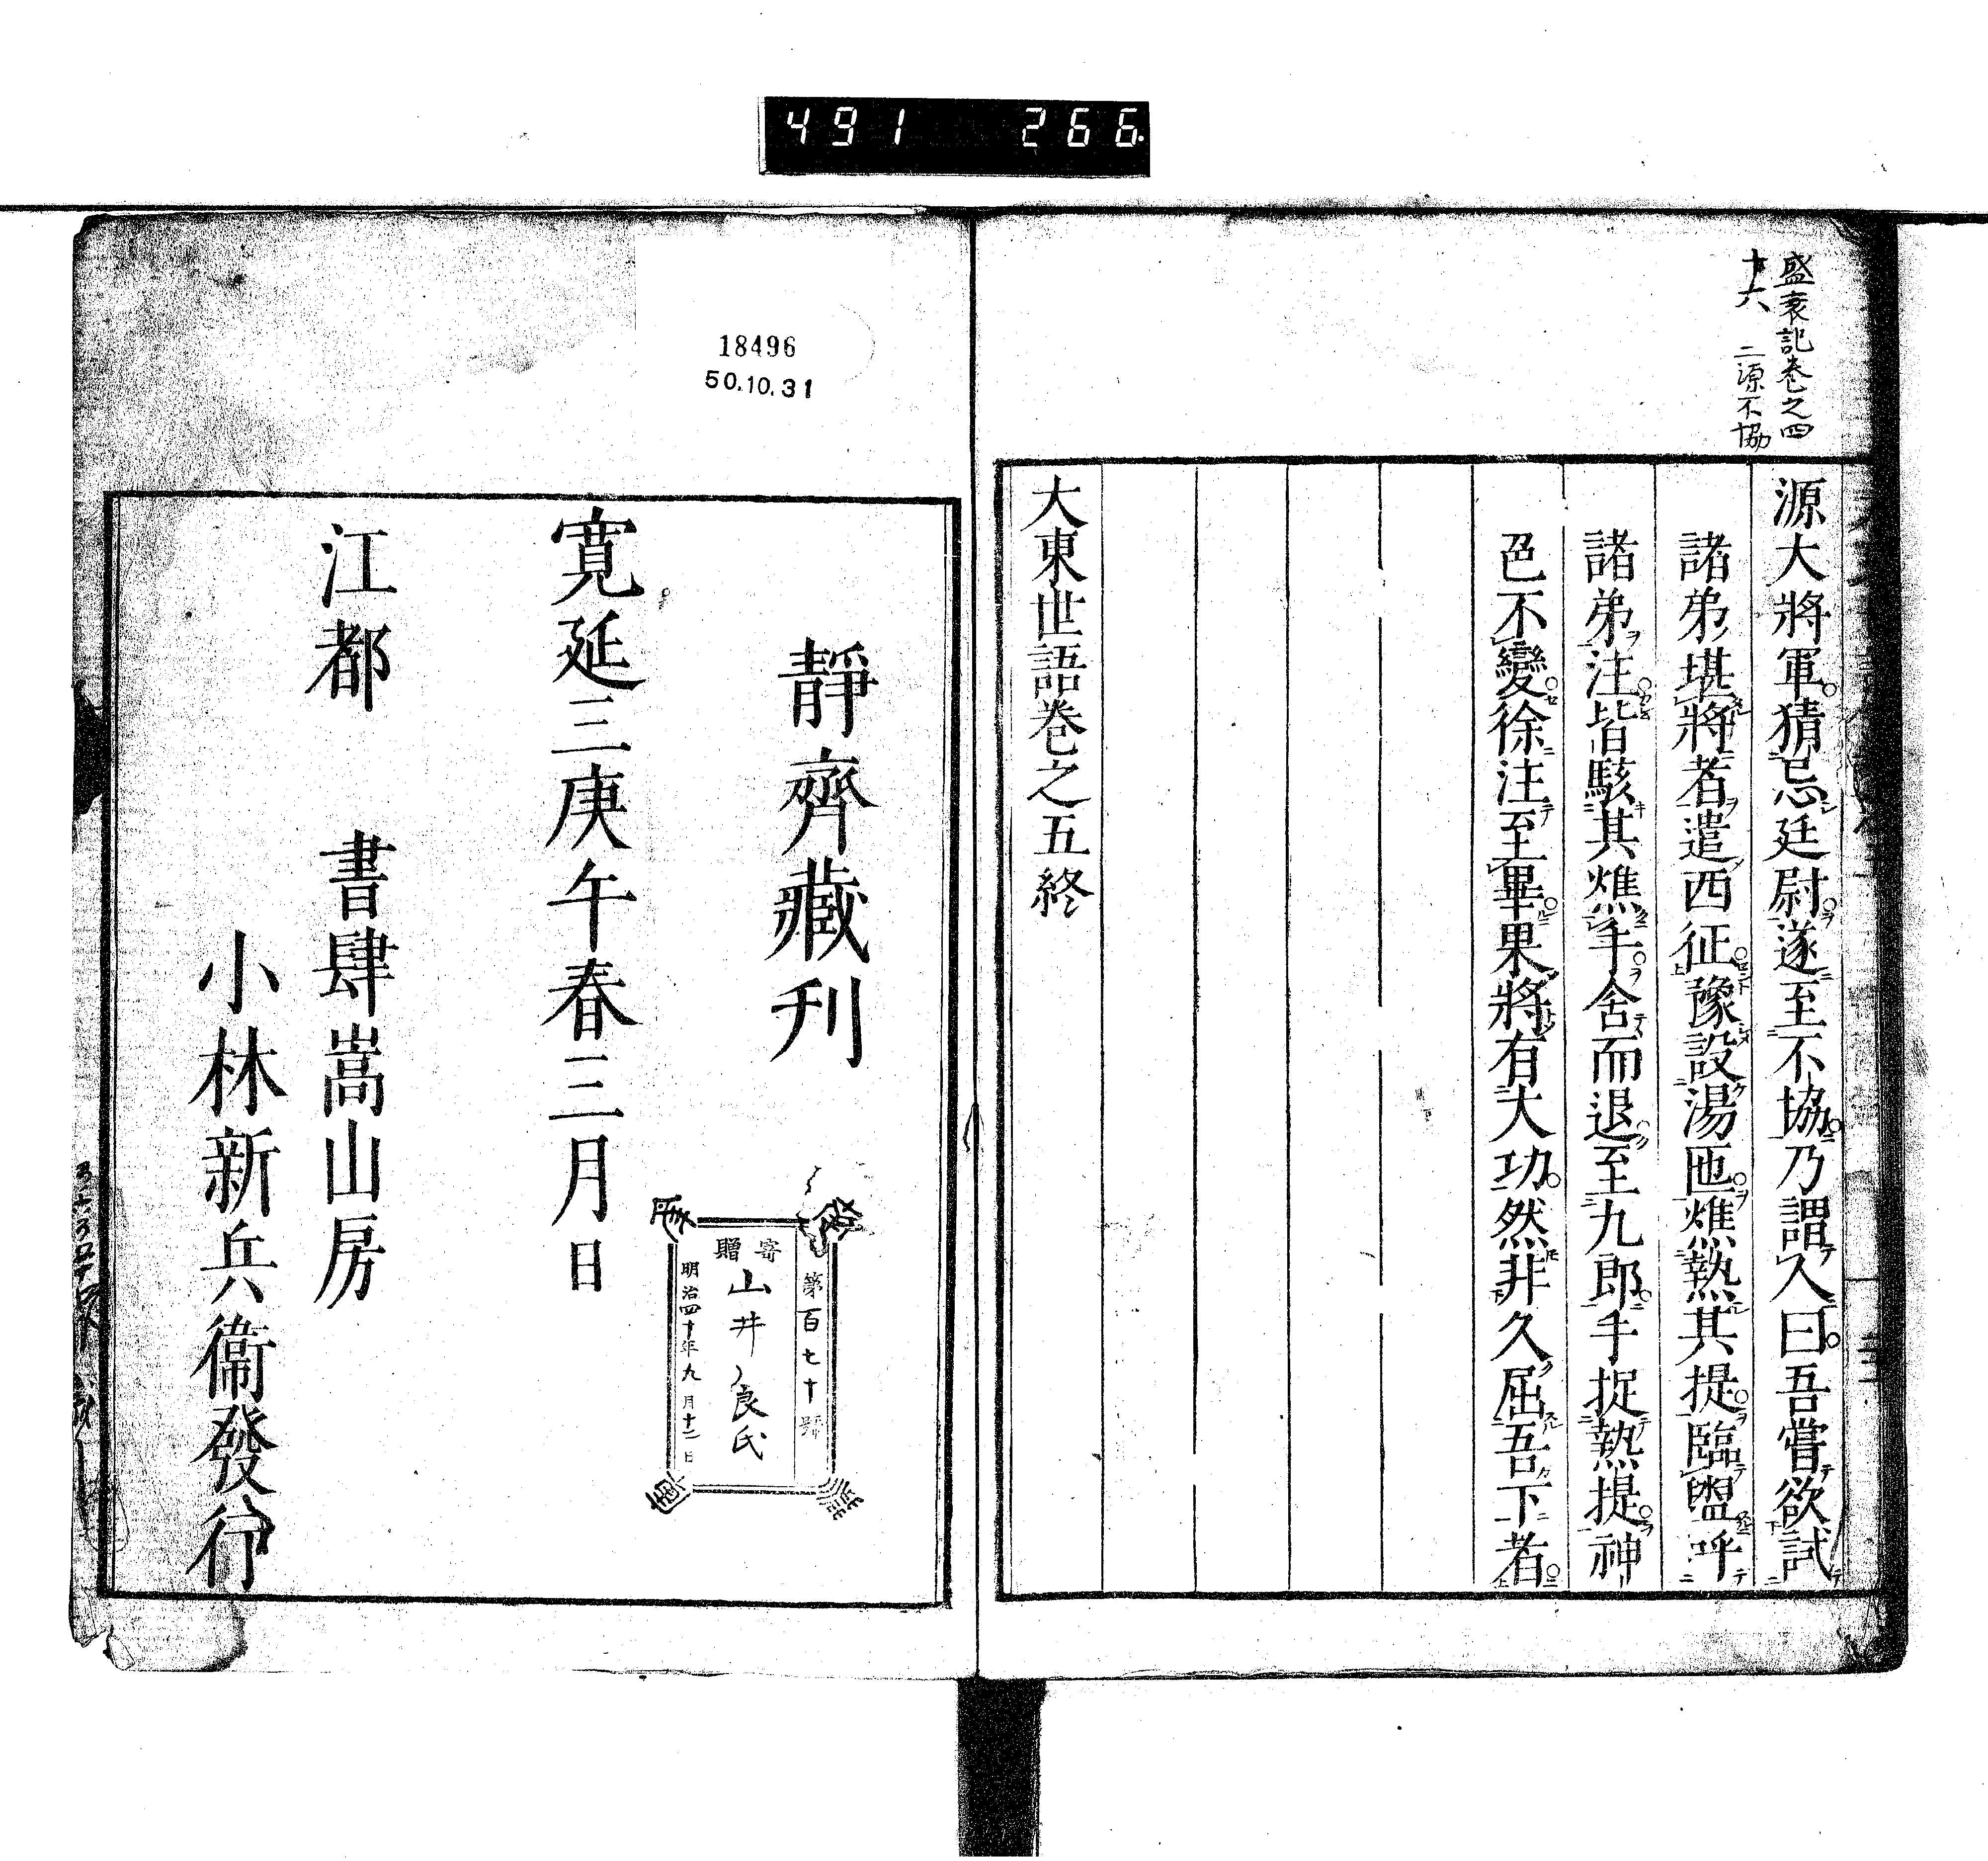 491 266
盛衰記巻之四
十六 二源不協
源大將軍猜忌廷尉遂至不協乃謂人曰吾嘗欲試
諸弟堪將者遣西征豫設湯匜燋熱其提臨盥呼
諸弟注皆駭其燋手舍而退至九郎手捉熱提神
色不變徐注至畢果將有大功然非久屈吾下者
大東世語巻之五終
18496
50.10.31
靜齊藏刊
寛延三庚午春三月日
江都 書肆嵩山房
小林新兵衞發行
第百七十號
寄贈
山井良氏
明治四十年九月十二日